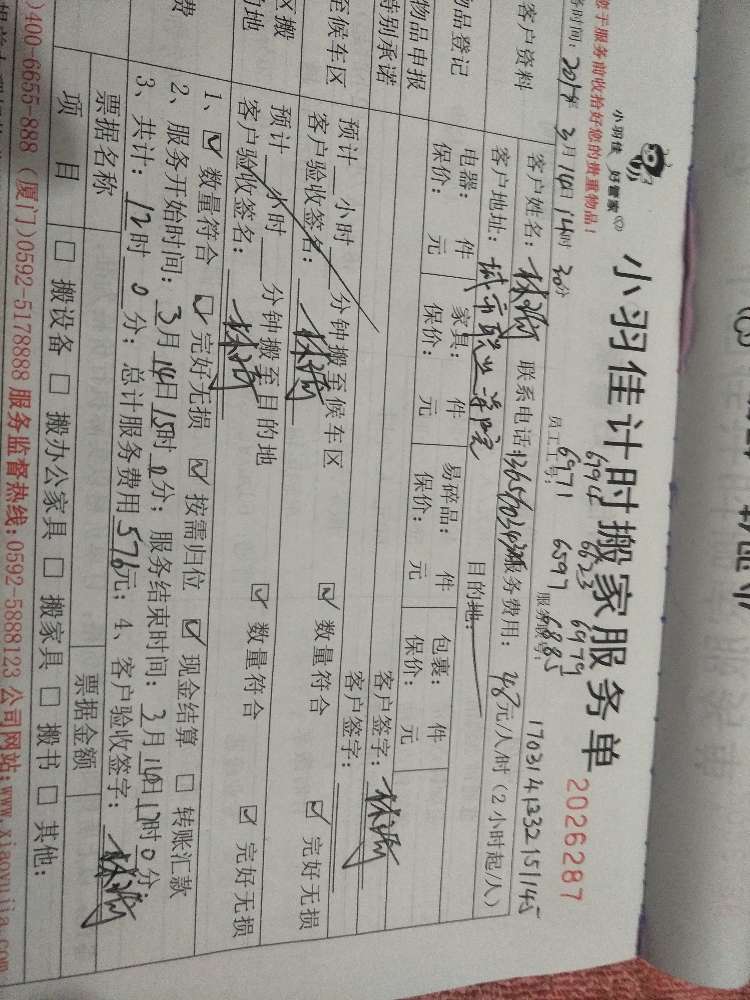 小羽佳计时搬家服务单
2026287
小羽佳 好管家
您于服务前收拾好您的贵重物品！
务时间：2017年3月14日14时30分
员工工号：
6623 6979
6971 6597 6885
17031413321 51145
客户资料
客户姓名： 联系电话： 服务费用：48元/人/时（2小时起/人）
客户地址：城市职业学院 目的地：
物品登记
电器： 件 家具： 件 易碎品： 件 包裹： 件
保价： 元 保价： 元 保价： 元 保价： 元
物品申报
客户签字：
特别承诺
客户签字：
至候车区
预计 小时 分钟搬至候车区
客户验收签名： ☑ 数量符合 ☑ 完好无损
区搬
的地
预计 小时 分钟搬至目的地
客户验收签名： ☑ 数量符合 ☑ 完好无损
费
1、☑ 数量符合 ☑ 完好无损 ☑ 按需归位 ☑ 现金结算 □ 转账汇款
2、服务开始时间：3月14日15时0分；服务结束时间：3月14日17时0分
3、共计：12时0分；总计服务费用576元；4、客户验收签字：
票据名称 票据金额
项 目 □ 搬设备 □ 搬办公家具 □ 搬家具 □ 搬书 □ 其他：
)400-6655-888 (厦门)0592-5178888 服务监督热线:0592-5888123 公司网站:www.xiaoyujia.com